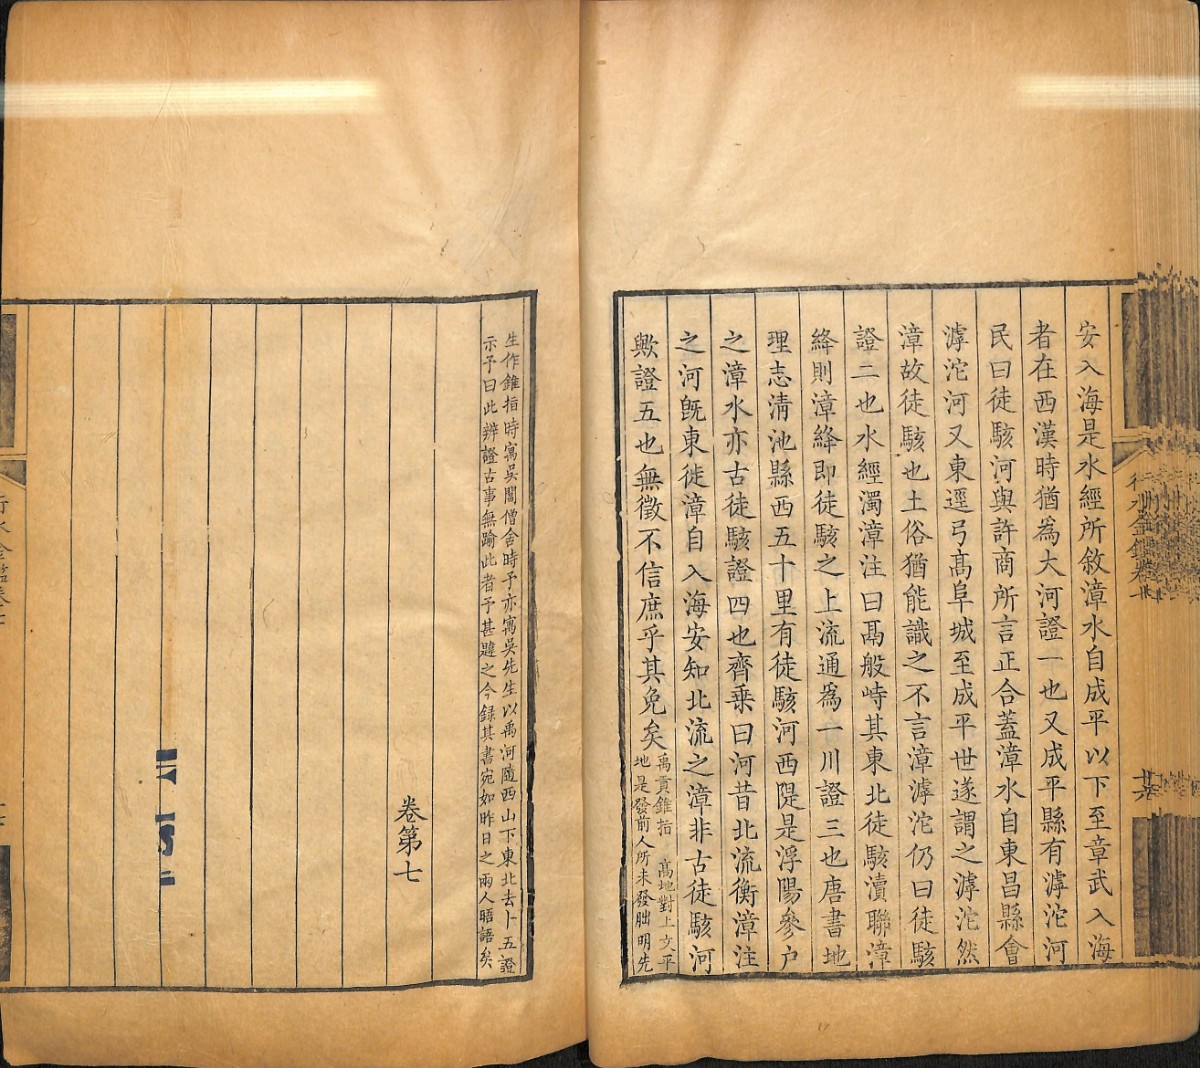 安入海是水經所敘漳水自成平以下至章武入海
者在西漢時猶為大河證一也又成平縣有滹沱河
民曰徒駭河與許商所言正合蓋漳水自東昌縣會
滹沱河又東逕弓高阜城至成平世遂謂之滹沱然
漳故徒駭也土俗猶能識之不言漳滹沱仍曰徒駭
證二也水經濁漳注曰鬲般峙其東北徒駭瀆聯漳
絳則漳絳即徒駭之上流通為一川證三也唐書地
理志清池縣西五十里有徒駭河西隄是浮陽參户
之漳水亦古徒駭證四也齊乘曰河昔北流衡漳注
之河旣東徙漳自入海安知北流之漳非古徒駭河
歟證五也無徵不信庶乎其免矣
禹貢錐指 高地對上文平
地是發前人所未發朏明先
行水金鑑卷七
生作錐指時寓吳閶僧舍時予亦寓吳先生以禹河隨西山下東北去卜五證
示予曰此辨證古事無踰此者予甚韙之今録其書宛如昨日之兩人晤語矣
卷第七
行水金鑑卷七